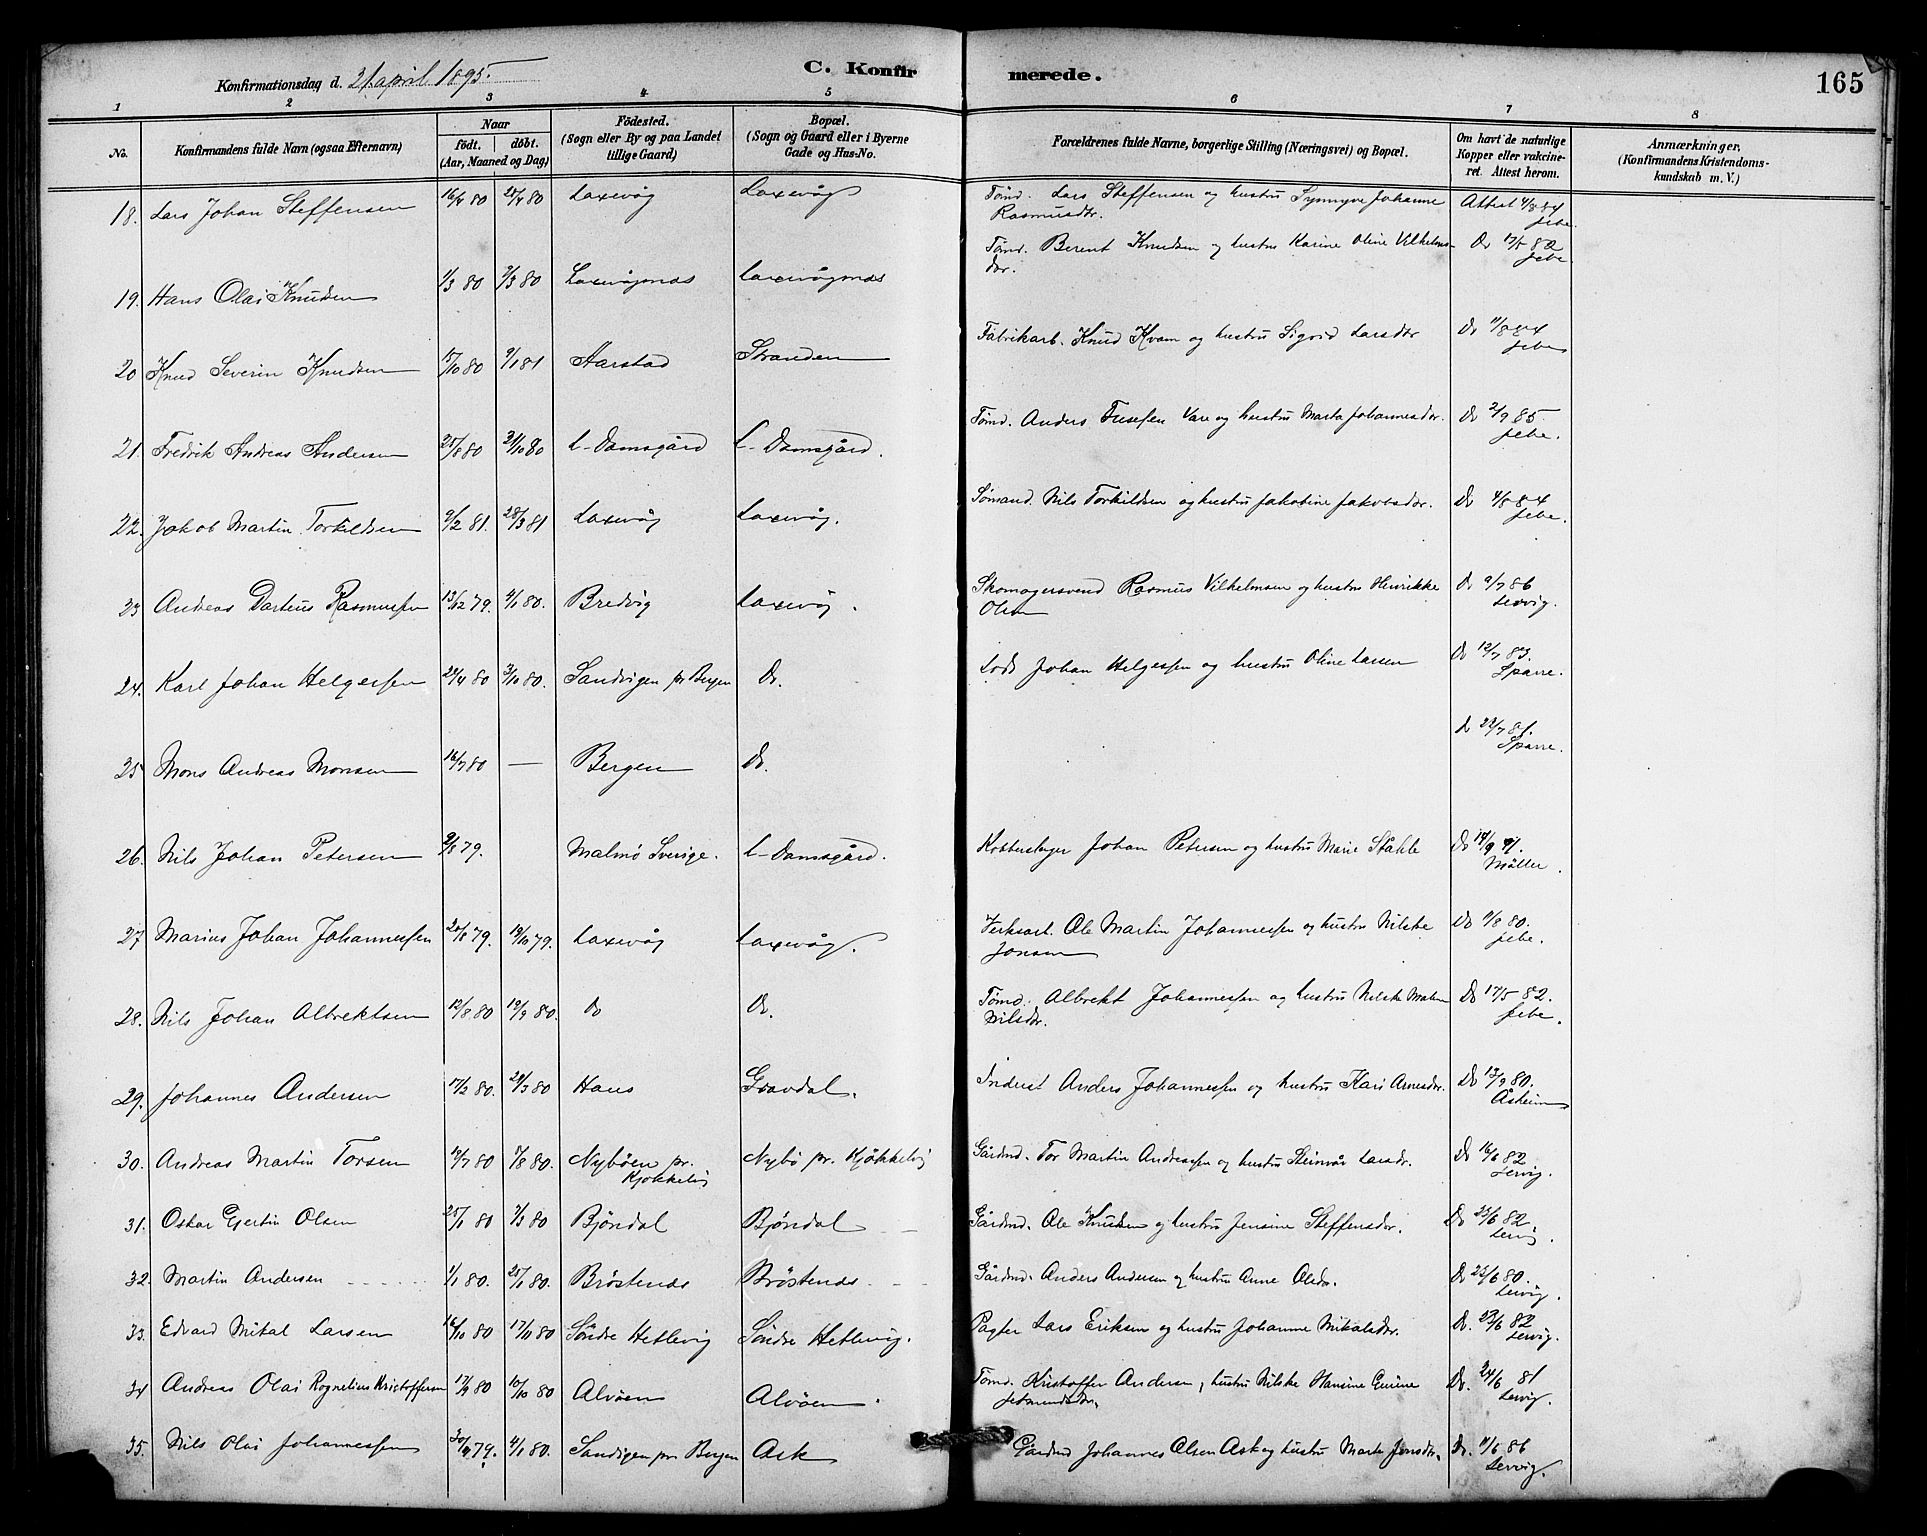 Konfirmationsdag d. 21 april 1895.
C. Konfirmerede.
165
1 2 3 4 5 6 7 8
No.
Konfirmandens fulde Navn (ogsaa Efternavn)
Naar
födt. döbt.
(Aar, Maaned og Dag)
Födested.
(Sogn eller By og paa Landet
tillige Gaard)
Bopæl.
(Sogn og Gaard eller i Byerne
Gade og Hus-No.
Forældrenes fulde Navne, borgerlige Stilling (Næringsvei) og Bopæl.
Om havt de naturlige
Kopper eller vakcine-
ret. Attest herom.
Anmærkninger,
(Konfirmandens Kristendoms-
kundskab m. V.)
18. Lars Johan Steffensen 16/4 80 25/4 80 Laxevåg Laxevåg Tømd. Lars Steffensen og hustru Synnyve Johanne Attest 4/8 84
Rasmusdtr. Jebe.
19. Hans Olai Knudsen 1/3 80 7/3 80 Laxevågnæs Laxevågnæs Tømd. Berent Knudsen og hustru Karine Oline Vilhelms- Do 17/5 82
dtr. Jebe
20 Knud Severin Knudsen 5/10 80 9/1 81 Aarstad Stranden Fabrikarb. Knud Kvam og hustru Sigrid Larsdtr Do 11/8 84
Jebe
21. Fredrik Andreas Andersen 25/8 80 31/10 80 L-Damsgård L-Damsgård. Tømd. Anders Vare og hustru Marta Johannesdtr. Do 2/9 85
Jebe.
22. Jakob Martin Torkildsen 9/2 81. 28/3 81 Laxevåg Laxevåg. Sømand. Nils Torkildsen og hustru Jakobine Jakobsdtr. Do 4/8 84
Jebe.
23 Andreas Darteus Rasmussen 13/12 79. 4/1 80. Bredvig Laxevåg. Skomagersvend Rasmus Vilhelmsen og hustru Henrikke Do 9/7 86
Olsen Lervig.
24. Karl Johan Helgessen 24/4 80 3/10 80. Sandvigen pr Bergen Do. Lods Johan Helgessen og hustru Oline Larsen Do 12/7 83.
Sparre.
25 Mons Andreas Monsen 16/7 80 — Bergen Do. Do 22/7 81.
Sparre.
26. Nils Johan Petersen 9/8 79. Malmø Sverige. L-Damsgård. Kobberslager Johan Petersen og hustru Marie Ståhle Do 14/9 91.
Møller.
27 Marius Johan Johannessen 20/8 79. 19/10 79. Laxevåg Laxevåg. Verksarb. Ole Martin Johannessen og hustru Nilske Do 11/8 80.
Jonsen Jebe.
28. Nils Johan Albrektsen 12/8 80 19/9 80. do Do. Tømd. Albrekt Johannessen og hustru Nilske Malene Do 17/5 82.
Nilsdtr. Jebe.
29. Johannes Andersen 17/2 80. 29/3 80 Haus Gravdal. Inderst Anders Johannessen og hustru Kari Arnesdtr. Do 13/9 80.
Åsheim
30. Andreas Martin Torsen 19/7 80 8/8 80. Nybøen pr. Nybø pr. Kjøkkelvig Gårdmd. Tor Martin Andreassen og hustru Steinvår Larsdr. Do 16/6 82
Kjøkkelvig Lervig.
31. Oskar Gjertin Olsen 25/1 80 7/3 80 Bjøndal Bjøndal Gårdmd. Ole Knudsen og hustru Jensine Steffensdtr. Do 23/6 82.
Lervig.
32. Martin Andersen 1/1 80. 25/1 80. Brøstenæs Brøstenæs Gårdmd. Anders Andersen og hustru Anne Olsdtr. Do 23/6 80.
Lervig.
33. Edvard Mikal Larsen 16/10 80 17/10 80 Søndre Hetlevig Søndre Hetlevig. Pagter Lars Eriksen og hustru Johanne Mikalsdtr. Do. 23/6 82
Lervig.
34 Andreas Olai Rognelius Kristoffersen 17/9 80 10/10 80 Alvøen Alvøen. Tømd. Kristoffer Andersen, hustru Nilske Hansine Do. 24/6 81
Lervig.
35. Nils Olai Johannessen 30/9 79. 4/1 80. Sandvigen pr Bergen Ask Gårdmd Johannes Olsen Ask og hustru Marta Jensdtr. Do. 11/6 86
Lervig.